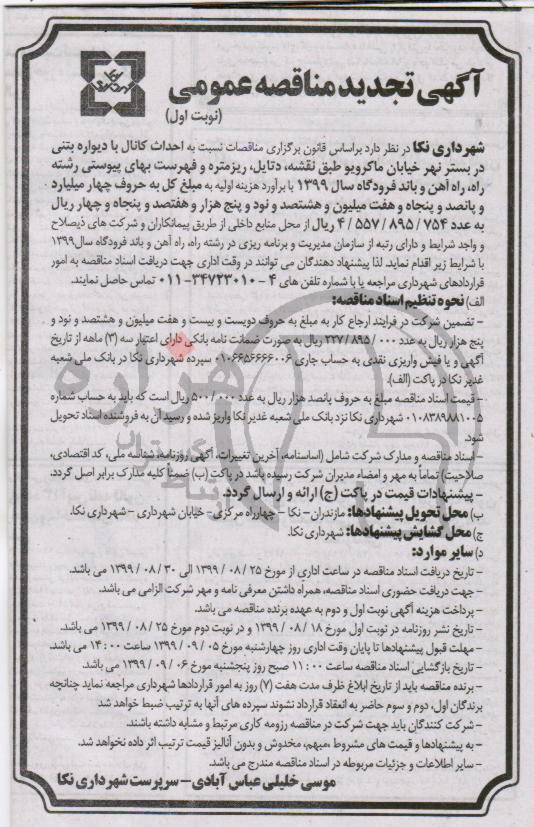 آگهی تجدید مناقصه عمومی
(نوبت اول)
شهرداری نکا در نظر دارد براساس قانون برگزاری مناقصات نسبت به احداث کانال با دیواره بتنی
در بستر نهر خیابان ماکرویو طبق نقشه، دتایل، ریزمتره و فهرست بهای پیوستی رشته
راه، راه آهن و باند فرودگاه سال ۱۳۹۹ با برآورد هزینه اولیه به مبلغ کل به حروف چهار میلیارد
و پانصد و پنجاه و هفت میلیون و هشتصد و نود و پنج هزار و هفتصد و پنجاه و چهار ریال
به عدد ۷۵۴ / ۸۹۵ / ۵۵۷ / ۴ ریال از محل منابع داخلی از طریق پیمانکاران و شرکت های ذیصلاح
و واجد شرایط و دارای رتبه از سازمان مدیریت و برنامه ریزی در رشته راه، راه آهن و باند فرودگاه سال ۱۳۹۹
با شرایط زیر اقدام نماید. لذا پیشنهاد دهندگان می توانند در وقت اداری جهت دریافت اسناد مناقصه به امور
قراردادهای شهرداری مراجعه یا با شماره تلفن های ۴ - ۳۴۷۲۳۰۱۰-۰۱۱ تماس حاصل نمایند.
الف) نحوه تنظیم اسناد مناقصه:
- تضمین شرکت در فرایند ارجاع کار به مبلغ به حروف دویست و بیست و هفت میلیون و هشتصد و نود و
پنج هزار ریال به عدد ۰۰۰ / ۸۹۵ / ۲۲۷ ریال به صورت ضمانت نامه بانکی دارای اعتبار سه (۳) ماهه از تاریخ
آگهی و یا فیش واریزی نقدی به حساب جاری ۰۱۰۶۶۵۶۶۶۶۰۰۶ سپرده شهرداری نکا در بانک ملی شعبه
غدیر نکا در پاکت (الف).
- قیمت اسناد مناقصه مبلغ به حروف پانصد هزار ریال به عدد ۰۰۰ / ۵۰۰ ریال است که باید به حساب شماره
۰۱۰۸۳۸۹۸۸۱۰۰۵ شهرداری نکا نزد بانک ملی شعبه غدیر نکا واریز شده و رسید آن به فروشنده اسناد تحویل
شود.
- اسناد مناقصه و مدارک شرکت شامل (اساسنامه، آخرین تغییرات، آگهی روزنامه، شناسه ملی، کد اقتصادی،
صلاحیت) تماماً به مهر و امضاء مدیران شرکت رسیده باشد در پاکت (ب) ضمناً کلیه مدارک برابر اصل گردد.
- پیشنهادات قیمت در پاکت (ج) ارائه و ارسال گردد.
ب) محل تحویل پیشنهادها: مازندران - نکا - چهارراه مرکزی - خیابان شهرداری - شهرداری نکا.
ج) محل گشایش پیشنهادها: شهرداری نکا.
د) سایر موارد:
- تاریخ دریافت اسناد مناقصه در ساعت اداری از مورخ ۲۵ / ۰۸ / ۱۳۹۹ الی ۳۰ / ۰۸ / ۱۳۹۹ می باشد.
- جهت دریافت حضوری اسناد مناقصه، همراه داشتن معرفی نامه و مهر شرکت الزامی می باشد.
- پرداخت هزینه آگهی نوبت اول و دوم به عهده برنده مناقصه می باشد.
- تاریخ نشر روزنامه در نوبت اول مورخ ۱۸ / ۰۸ / ۱۳۹۹ و در نوبت دوم مورخ ۲۵ / ۰۸ / ۱۳۹۹ می باشد.
- مهلت قبول پیشنهادها تا پایان وقت اداری روز چهارشنبه مورخ ۰۵ / ۰۹ / ۱۳۹۹ ساعت ۰۰ : ۱۴ می باشد.
- تاریخ بازگشایی اسناد مناقصه ساعت ۰۰ : ۱۱ صبح روز پنجشنبه مورخ ۰۶ / ۰۹ / ۱۳۹۹ می باشد.
- برنده مناقصه باید از تاریخ ابلاغ ظرف مدت هفت (۷) روز به امور قراردادها شهرداری مراجعه نماید چنانچه
برندگان اول، دوم و سوم حاضر به انعقاد قرارداد نشوند سپرده های آنها به ترتیب ضبط خواهد شد
- شرکت کنندگان باید جهت شرکت در مناقصه رزومه کاری مرتبط و مشابه داشته باشند.
- به پیشنهادها و قیمت های مشروط، مبهم، مخدوش و بدون آنالیز قیمت ترتیب اثر داده نخواهد شد.
- سایر اطلاعات و جزئیات مربوطه در اسناد مناقصه مندرج می باشد.
موسی خلیلی عباس آبادی - سرپرست شهرداری نکا
هزاره